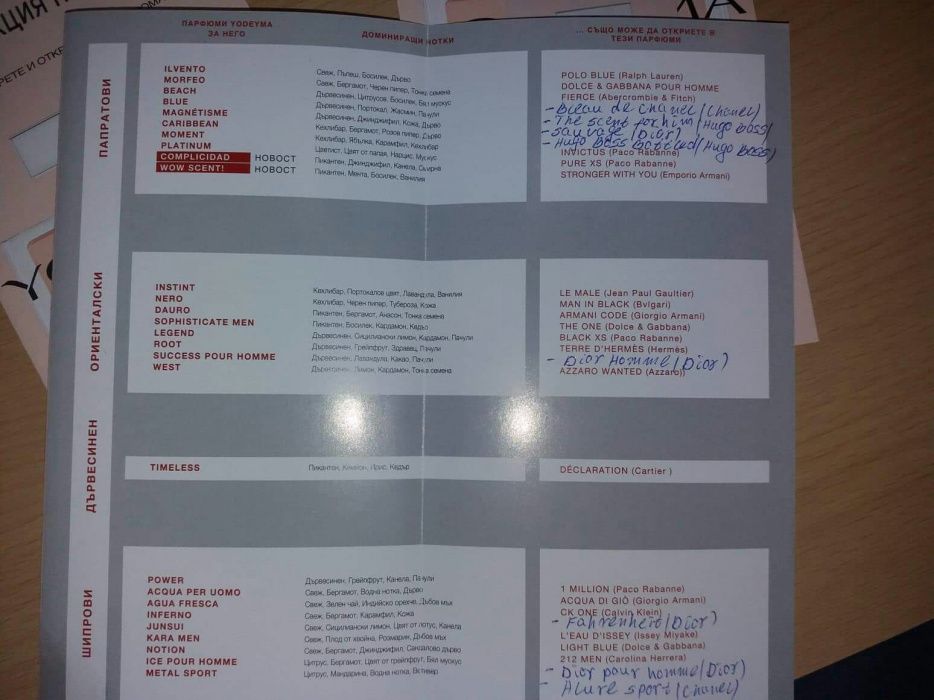 ПАРФЮМИ YODEYMA
ЗА НЕГО
ДОМИНИРАЩИ НОТКИ
... СЪЩО МОЖЕ ДА ОТКРИЕТЕ В
ТЕЗИ ПАРФЮМИ
ПАПРАТОВИ
ILVENTO
MORFEO
BEACH
BLUE
MAGNÉTISME
CARIBBEAN
MOMENT
PLATINUM
COMPLICIDAD НОВОСТ
WOW SCENT! НОВОСТ
Свеж, Пъпеш, Босилек, Дърво
Свеж, Бергамот, Черен пипер, Тонка семена
Дървесинен, Цитрусов, Босилек, Бял мускус
Дървесинен, Портокал, Жасмин, Пачули
Дървесинен, Джинджифил, Кожа, Дърво
Кехлибар, Бергамот, Розов пипер, Дърво
Кехлибар, Ябълка, Карамфил, Кехлибар
Цветист, Цвят от папая, Нарцис, Мускус
Пикантен, Джинджифил, Канела, Смирна
Пикантен, Мента, Босилек, Ванилия
POLO BLUE (Ralph Lauren)
DOLCE & GABBANA POUR HOMME
FIERCE (Abercrombie & Fitch)
- Bleau de chanel/(Chanel)
- The scent for him/Hugo boss/
- Sauvage (Dior)
- Hugo Boss Bottled/Hugo Boss)
INVICTUS (Paco Rabanne)
PURE XS (Paco Rabanne)
STRONGER WITH YOU (Emporio Armani)
ОРИЕНТАЛСКИ
INSTINT
NERO
DAURO
SOPHISTICATE MEN
LEGEND
ROOT
SUCCESS POUR HOMME
WEST
Кехлибар, Портокалов цвят, Лавандула, Ванилия
Кехлибар, Черен пипер, Тубероза, Кожа
Пикантен, Бергамот, Анасон, Тонка семена
Пикантен, Босилек, Кардамон, Кедър
Дървесинен, Сицилиански лимон, Кардамон, Пачули
Дървесинен, Грейпфрут, Здравец, Пачули
Дървесинен, Лавандула, Какао, Пачули
Дървесинен, Лимон, Кардамон, Тонка семена
LE MALE (Jean Paul Gaultier)
MAN IN BLACK (Bvlgari)
ARMANI CODE (Giorgio Armani)
THE ONE (Dolce & Gabbana)
BLACK XS (Paco Rabanne)
TERRE D'HERMÈS (Hermès)
- Dior Homme/(Dior)
AZZARO WANTED (Azzaro)
ДЪРВЕСИНЕН
TIMELESS
Пикантен, Кимион, Ирис, Кедър
DÉCLARATION (Cartier )
ШИПРОВИ
POWER
ACQUA PER UOMO
AGUA FRESCA
INFERNO
JUNSUI
KARA MEN
NOTION
ICE POUR HOMME
METAL SPORT
Дървесинен, Грейпфрут, Канела, Пачули
Свеж, Бергамот, Водна нотка, Дърво
Свеж, Зелен чай, Индийско орехче, Дъбов мъх
Свеж, Бергамот, Карамфил, Кожа
Свеж, Сицилиански лимон, Цвят от лотус, Канела
Свеж, Плод от хвойна, Розмарин, Дъбов мъх
Свеж, Бергамот, Джинджифил, Сандалово дърво
Цитрус, Бергамот, Цвят от грейпфрут, Бял мускус
Цитрус, Мандарина, Водна нотка, Ветивер
1 MILLION (Paco Rabanne)
ACQUA DI GIÒ (Giorgio Armani)
CK ONE (Calvin Klein)
- Fahrenheit/Dior)
L'EAU D'ISSEY (Issey Miyake)
LIGHT BLUE (Dolce & Gabbana)
212 MEN (Carolina Herrera)
- Dior pour homme/Dior)
- Alure sport/(Chanel)